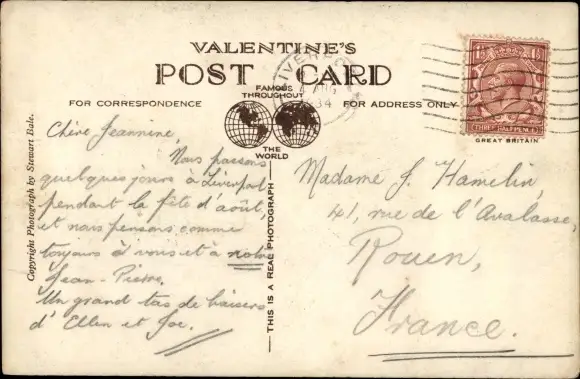 VALENTINE'S
POST CARD
FAMOUS
THROUGHOUT
THE
WORLD
FOR CORRESPONDENCE
FOR ADDRESS ONLY
THREE HALFPENCE
GREAT BRITAIN
LIVERPOOL
AUG
34
Copyright Photograph by Stewart Bale.
THIS IS A REAL PHOTOGRAPH
Chère Jeannine
Nous passons
quelques jours à Liverpool
pendant la fête d'août,
et nous pensons comme
toujours à vous et à notre
Jean-Pierre.
Un grand tas de baisers
d'Ellen et Joe.
Madame J. Hamelin,
41, rue de l'Avalasse,
Rouen,
France.